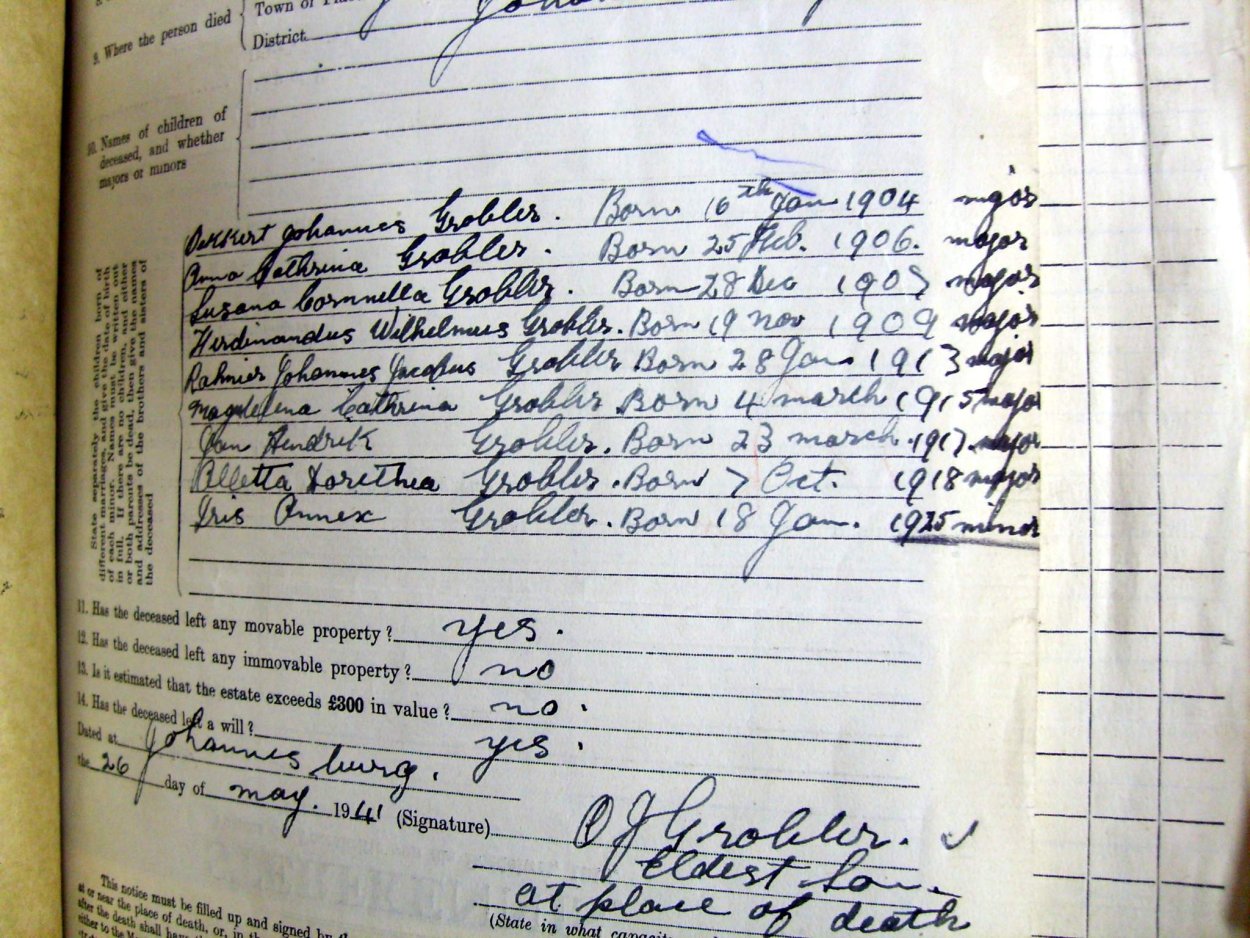 9. Where the person died
Town or
District
10. Names of children of
deceased, and whether
majors or minors
State separately the children born of
different marriages, and give the date of birth
of each minor. Names must be written out
in full. If there are no children, and either
or both parents be dead, then give the names
and addresses of the brothers and sisters of
the deceased
Johannes Grobler. Born 16th Jan 1904 major
Anna Cathrina Grobler. Born 25 Feb. 1906. major
Susana Cornnella Grobler. Born 28 Dec major
Ferdinandus Wilhelmus Grobler. Born 19 Nov 1909 major
Johannes Jacobus Grobler Born 28 Jan 1913 major
Magdelena Cathrina Grobler. Born 4 march 1915 major
Jan Hendrik Grobler. Born 23 march. 1917. major
Alletta Dorethea Grobler. Born 7 Oct. 1918 major
Iris Annex Grobler. Born 18 Jan. 1925 minor
11. Has the deceased left any movable property? yes.
12. Has the deceased left any immovable property? no
13. Is it estimated that the estate exceeds £300 in value? no.
14. Has the deceased left a will? yes.
Dated at Johannesburg.
the 26 day of may. 1941 (Signature) O J Grobler.
Eldest Son.
at place of death
(State in what
This notice must be filled up and signed by
at or near the place of death, or, in
after the death shall have
either to the